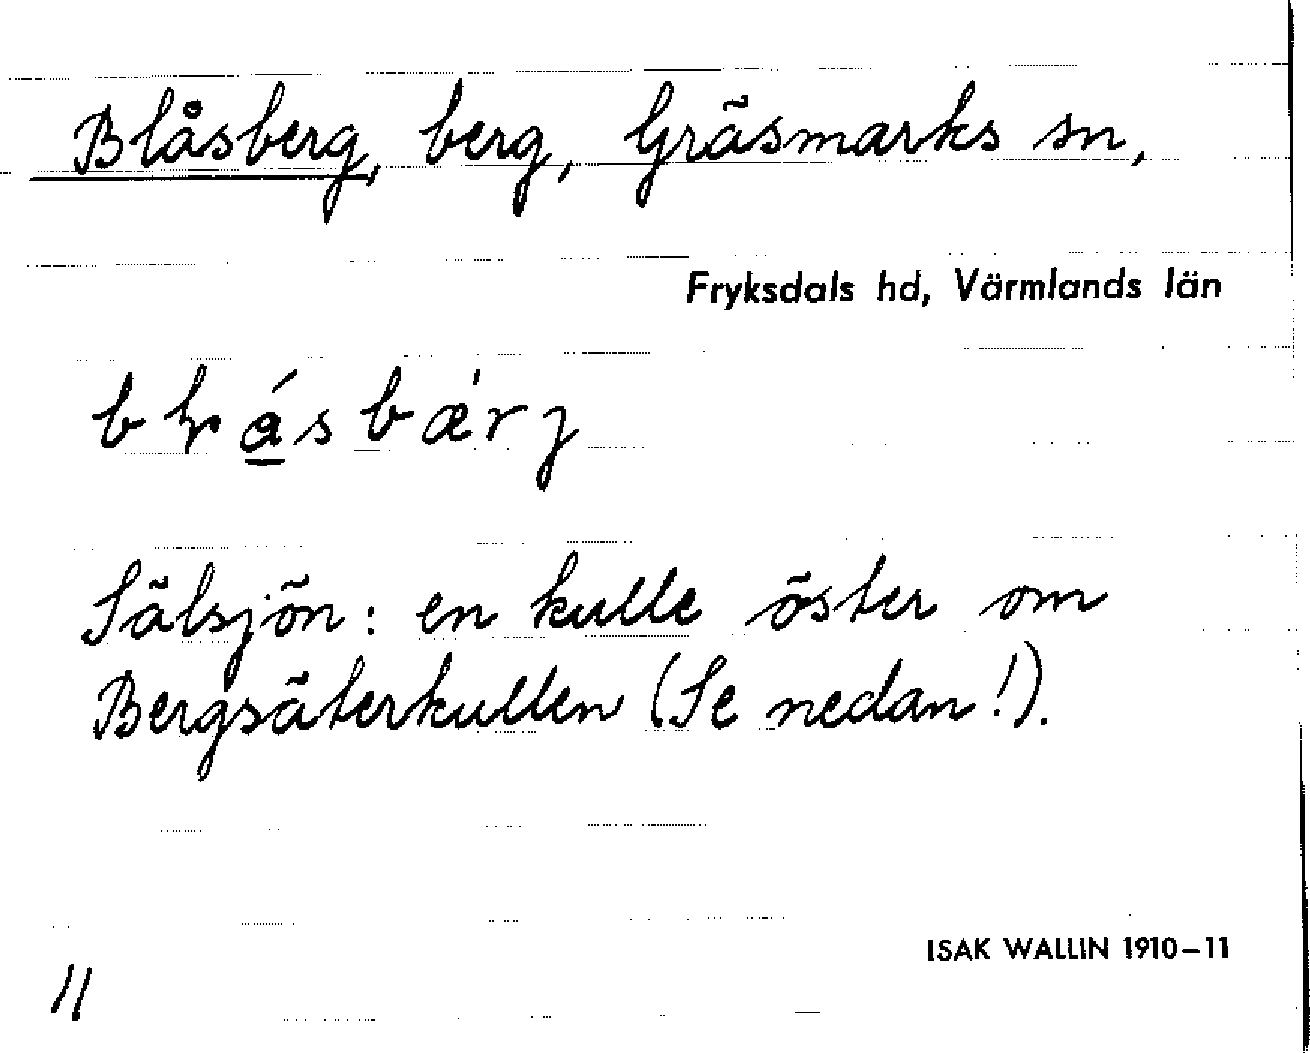 Blåsberg, berg, Gräsmarks sn,
Fryksdals hd, Värmlands län
Sälsjön: en kulle öster om
Bergsäterkullen (Se nedan!).
ISAK WALLIN 1910–11
11